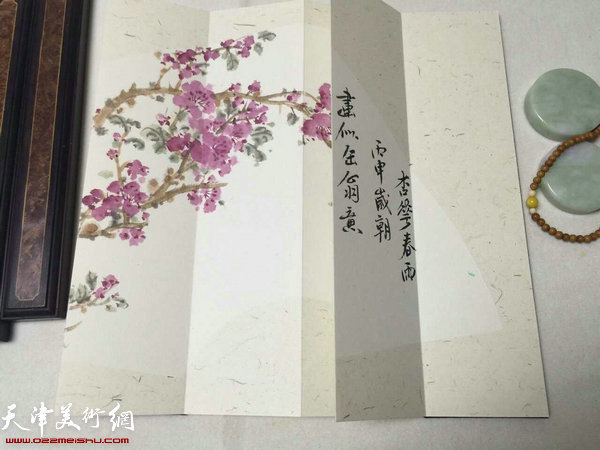 杏花春雨
丙申歲朝
畫似
翁
天津美術網
www.022meishu.com